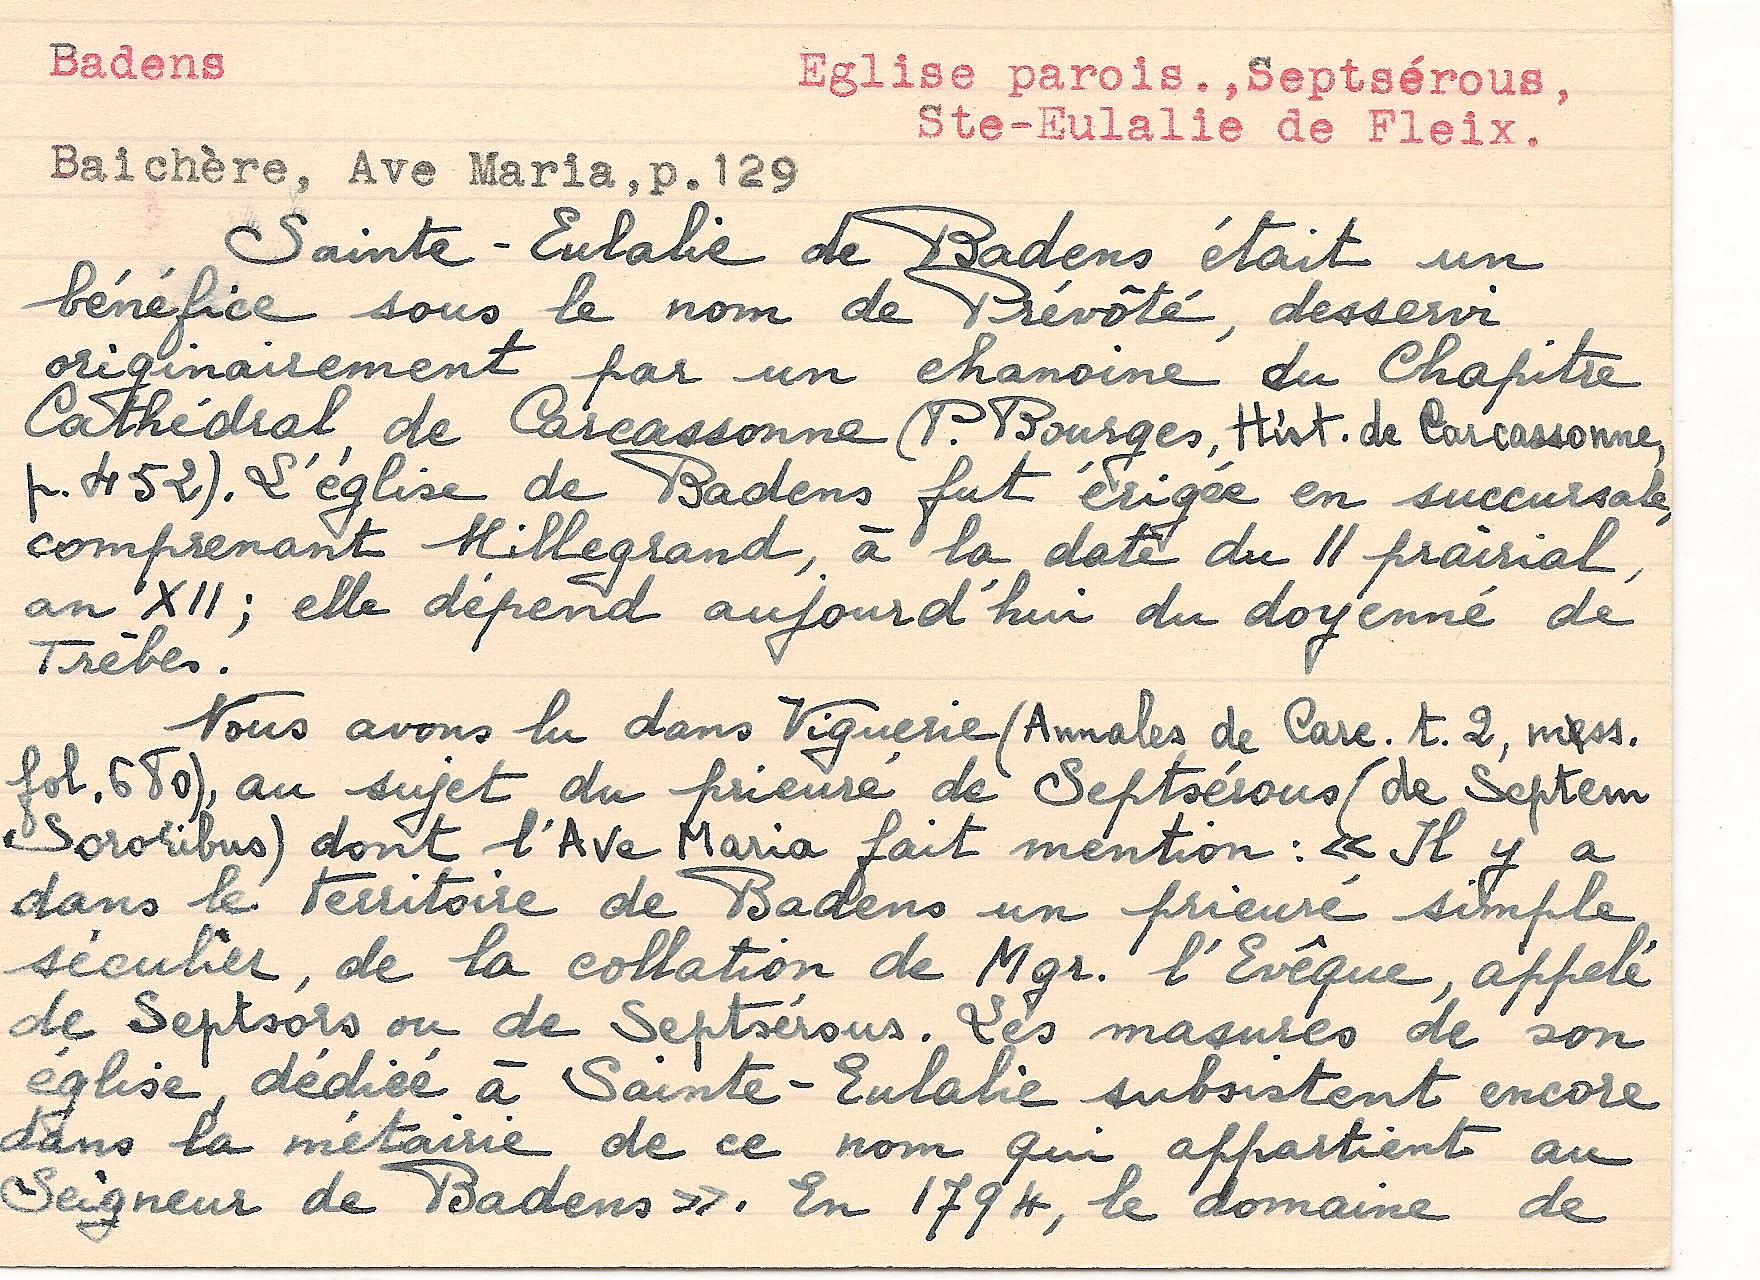 Badens
Eglise parois.,Septsérous,
Ste-Eulalie de Fleix.
Baichère, Ave Maria,p.129
Sainte-Eulalie de Badens était un
bénéfice sous le nom de Prévôté, desservi
originairement par un chanoine du Chapitre
Cathédral, de Carcassonne (P. Bourges, Hist. de Carcassonne,
p. 452). L'église de Badens fut érigée en succursale,
comprenant Millegrand, à la date du 11 prairial,
an XII; elle dépend aujourd'hui du doyenné de
Trèbes.
Nous avons lu dans Viguerie (Annales de Carc. t. 2, mss.
fol. 680), au sujet du prieuré de Septsérous (de Septem
Sororibus) dont l'Ave Maria fait mention : « Il y a
dans le territoire de Badens un prieuré simple,
séculier, de la collation de Mgr. l'Evêque, appelé
de Septsòrs ou de Septsérous. Les masures de son
église, dédiée à Sainte-Eulalie subsistent encore
dans la métairie de ce nom qui appartient au
Seigneur de Badens ». En 1794, le domaine de